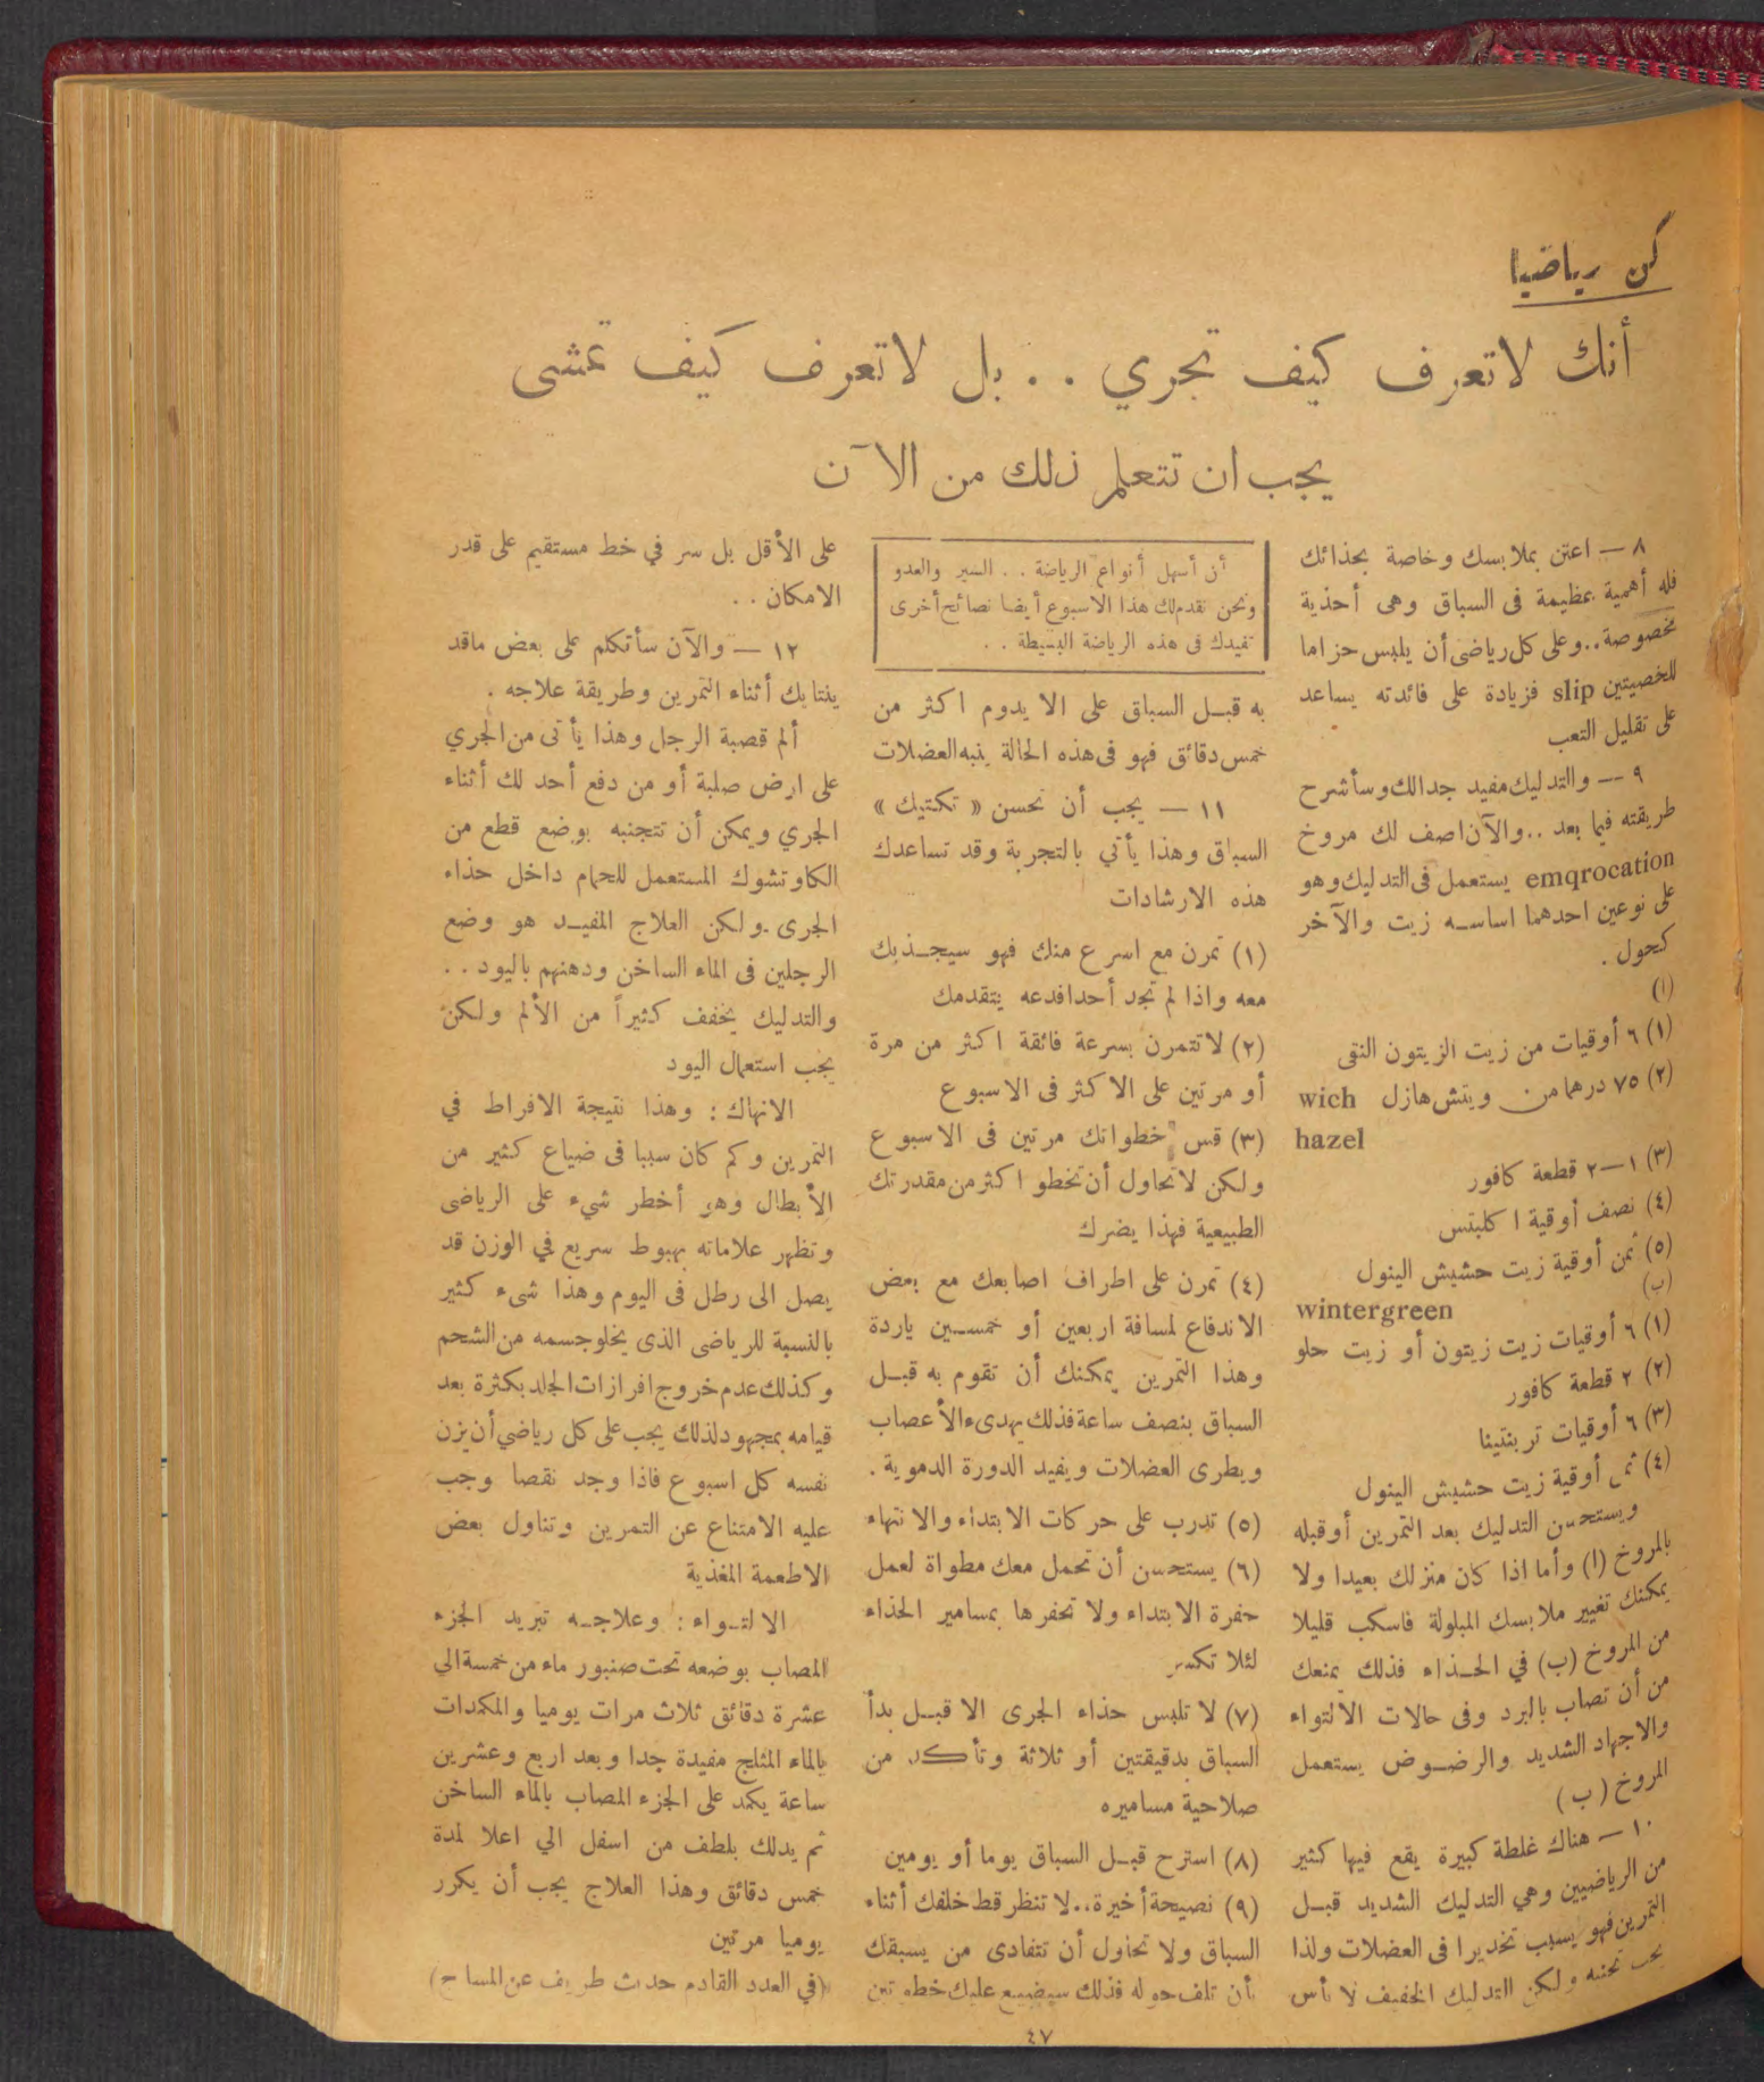 كن رياضيا
أنك لاتعرف كيف تجري . . بل لاتعرف كيف تمشى
يجب ان تتعلم ذلك من الآن
٨ — اعتن بملابسك وخاصة بحذائك
فله أهمية عظيمة فى السباق وهى أحذية
مخصوصة..وعلى كل رياضى أن يلبس حزاما
للخصيتين slip فزيادة على فائدته يساعد
على تقليل التعب
٩ — والتدليك مفيد جدالك وسأشرح
طريقته فيما بعد ..والآن اصف لك مروخ
emqrocation يستعمل فى التدليك وهو
على نوعين احدهما اساسه زيت والآخر
كحول .
(ا)
(١) ٦ أوقيات من زيت الزيتون النقى
(٢) ٧٥ درهما من ويتش هازل wich
hazel
(٣) ١—٢ قطعة كافور
(٤) نصف أوقية اكلبتس
(٥) ثمن أوقية زيت حشيش الينول
(ب)
wintergreen
(١) ٦ أوقيات زيت زيتون أو زيت حلو
(٢) ٢ قطعة كافور
(٣) ٦ أوقيات تربنتينا
(٤) ثمن أوقية زيت حشيش الينول
ويستحسن التدليك بعد التمرين أوقبله
بالمروخ (ا) وأما اذا كان منزلك بعيدا ولا
يمكنك تغيير ملابسك المبلولة فاسكب قليلا
من المروخ (ب) في الحذاء فذلك يمنعك
من أن تصاب بالبرد وفى حالات الالتواء
والاجهاد الشديد والرضوض يستعمل
المروخ (ب)
١٠ — هناك غلطة كبيرة يقع فيها كثير
من الرياضيين وهي التدليك الشديد قبل
التمرين فهو يسبب تخديرا فى العضلات ولذا
يجب تجنبه ولكن التدليك الخفيف لا بأس
أن أسهل أنواع الرياضة . . السير والعدو
ونحن نقدم لك هذا الاسبوع أيضا نصائح أخرى
تفيدك فى هذه الرياضة البسيطة . .
به قبل السباق على الا يدوم اكثر من
خمس دقائق فهو فى هذه الحالة ينبه العضلات
١١ — يجب أن تحسن « تكتيك »
السباق وهذا يأتي بالتجربة وقد تساعدك
هذه الارشادات
(١) تمرن مع اسرع منك فهو سيجذبك
معه واذا لم تجد أحدا فدعه يتقدمك
(٢) لا تتمرن بسرعة فائقة اكثر من مرة
أو مرتين على الاكثر فى الاسبوع
(٣) قس خطواتك مرتين فى الاسبوع
ولكن لاتحاول أن تخطو اكثر من مقدرتك
الطبيعية فهذا يضرك
(٤) تمرن على اطراف اصابعك مع بعض
الاندفاع لمسافة اربعين أو خمسين ياردة
وهذا التمرين يمكنك أن تقوم به قبل
السباق بنصف ساعة فذلك يهدىء الأعصاب
ويطرى العضلات ويفيد الدورة الدموية .
(٥) تدرب على حركات الابتداء والانتهاء
(٦) يستحسن أن تحمل معك مطواة لعمل
حفرة الابتداء ولا تحفرها بمسامير الحذاء
لئلا تكسر
(٧) لا تلبس حذاء الجرى الا قبل بدأ
السباق بدقيقتين أو ثلاثة وتأكد من
صلاحية مساميره
(٨) استرح قبل السباق يوما أو يومين
(٩) نصيحة أخيرة..لا تنظر قط خلفك أثناء
السباق ولا تحاول أن تتفادى من يسبقك
بأن تلف حوله فذلك سيضيع عليك خطوتين
على الأقل بل سر في خط مستقيم على قدر
الامكان . .
١٢ — والآن سأتكلم على بعض ماقد
ينتابك أثناء التمرين وطريقة علاجه .
ألم قصبة الرجل وهذا يأتى من الجري
على ارض صلبة أو من دفع أحد لك أثناء
الجري ويمكن أن تتجنبه بوضع قطع من
الكاوتشوك المستعمل للحمام داخل حذاء
الجرى .ولكن العلاج المفيد هو وضع
الرجلين فى الماء الساخن ودهنهم باليود . .
والتدليك يخفف كثيراً من الألم ولكن
يجب استعمال اليود
الانهاك : وهذا نتيجة الافراط في
التمرين وكم كان سببا فى ضياع كثير من
الأبطال وهو أخطر شيء على الرياضى
وتظهر علاماته بهبوط سريع في الوزن قد
يصل الى رطل فى اليوم وهذا شىء كثير
بالنسبة للرياضى الذى يخلو جسمه من الشحم
وكذلك عدم خروج افرازات الجلد بكثرة بعد
قيامه بمجهود لذلك يجب على كل رياضي أن يزن
نفسه كل اسبوع فاذا وجد نقصا وجب
عليه الامتناع عن التمرين وتناول بعض
الاطعمة المغذية
الالتواء : وعلاجه تبريد الجزء
المصاب بوضعه تحت صنبور ماء من خمسة الي
عشرة دقائق ثلاث مرات يوميا والمكمدات
بالماء المثلج مفيدة جدا وبعد اربع وعشرين
ساعة يكمد على الجزء المصاب بالماء الساخن
ثم يدلك بلطف من اسفل الي اعلا لمدة
خمس دقائق وهذا العلاج يجب أن يكرر
يوميا مرتين
(في العدد القادم حديث طريف عن المساح)
٤٧